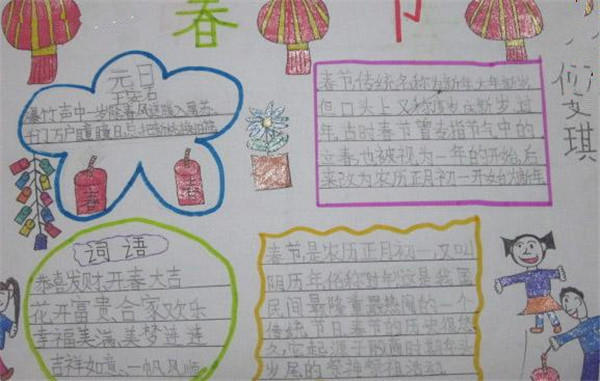 春节
元日
王安石
爆竹声中一岁除春风送暖入屠苏
千门万户曈曈日总把新桃换旧符
春
春节传统名称为新年大年新岁
但口头上又称度岁庆新岁过
年,古时春节曾专指节气中的
立春,也被视为一年的开始,后
来改为农历正月初一开始为新年
安琪
词语
恭喜发财、开春大吉
花开富贵、合家欢乐
幸福美满、美梦连连
吉祥如意、一帆风顺
春节,是农历正月初一,又叫
阴历年,俗称过年这是我国
民间最隆重最热闹的一个
传统节日.春节的历史很悠
久,它起源于殷商时期年头
岁尾的祭神祭祖活动.